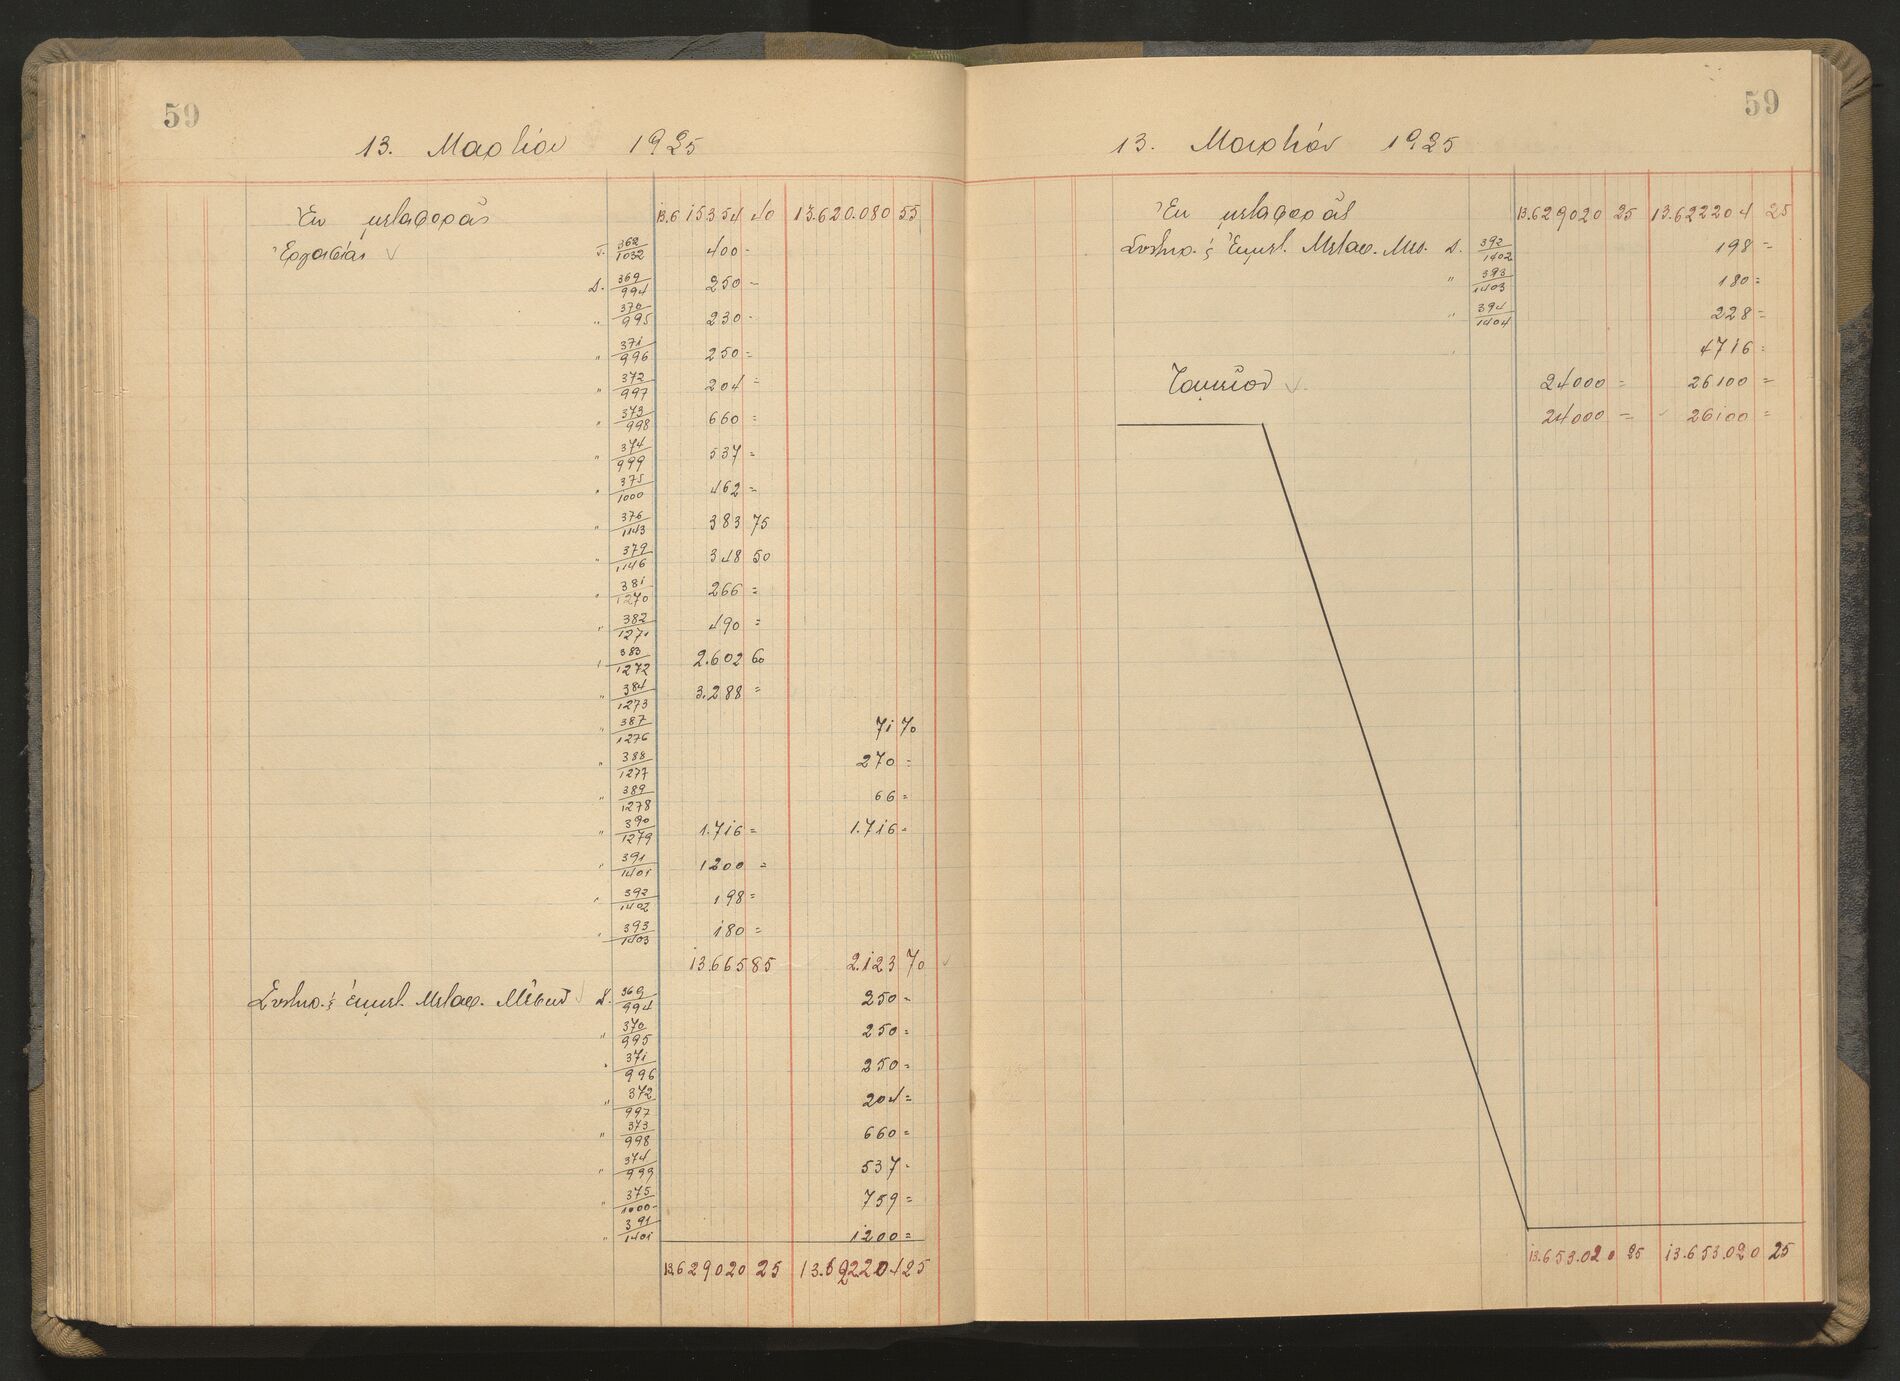 59
13. Μαρτίου 1925
Ἐκ μεταφορᾶς 13.615354 40 13.620.080 55
Ἐργασίαι 362/1032 400-
Δ. 369/994 250-
" 370/995 230-
" 371/996 250=
" 372/997 204=
" 373/998 660=
" 374/999 537=
" 375/1000 462=
" 376/1143 383 75
" 379/1146 348 50
" 381/1270 266=
" 382/1271 490=
" 383/1272 2.602 60
" 384/1273 3.288=
" 387/1276 71 70
" 388/1277 270=
" 389/1278 66=
" 390/1279 1.716= 1.716=
" 391/1401 1200=
" 392/1402 198=
" 393/1403 180=
13.665 85 2.123 70
Μεταφ. Μέσων Δ. 369/994 250=
" 370/995 250=
" 371/996 250=
" 372/997 204=
" 373/998 660=
" 374/999 537-
" 375/1000 759=
" 391/1401 1200=
13.629020 25 13.622204 25
59
13. Μαρτίου 1925
Ἐκ μεταφορᾶς 13.629020 25 13.622204 25
Μεταφ. Μεσ. Δ. 392/1402 198=
" 393/1403 180=
" 394/1404 228=
4716=
Ταμεῖον 24000= 26100=
24000= 26100=
13.653.020 25 13.653.020 25